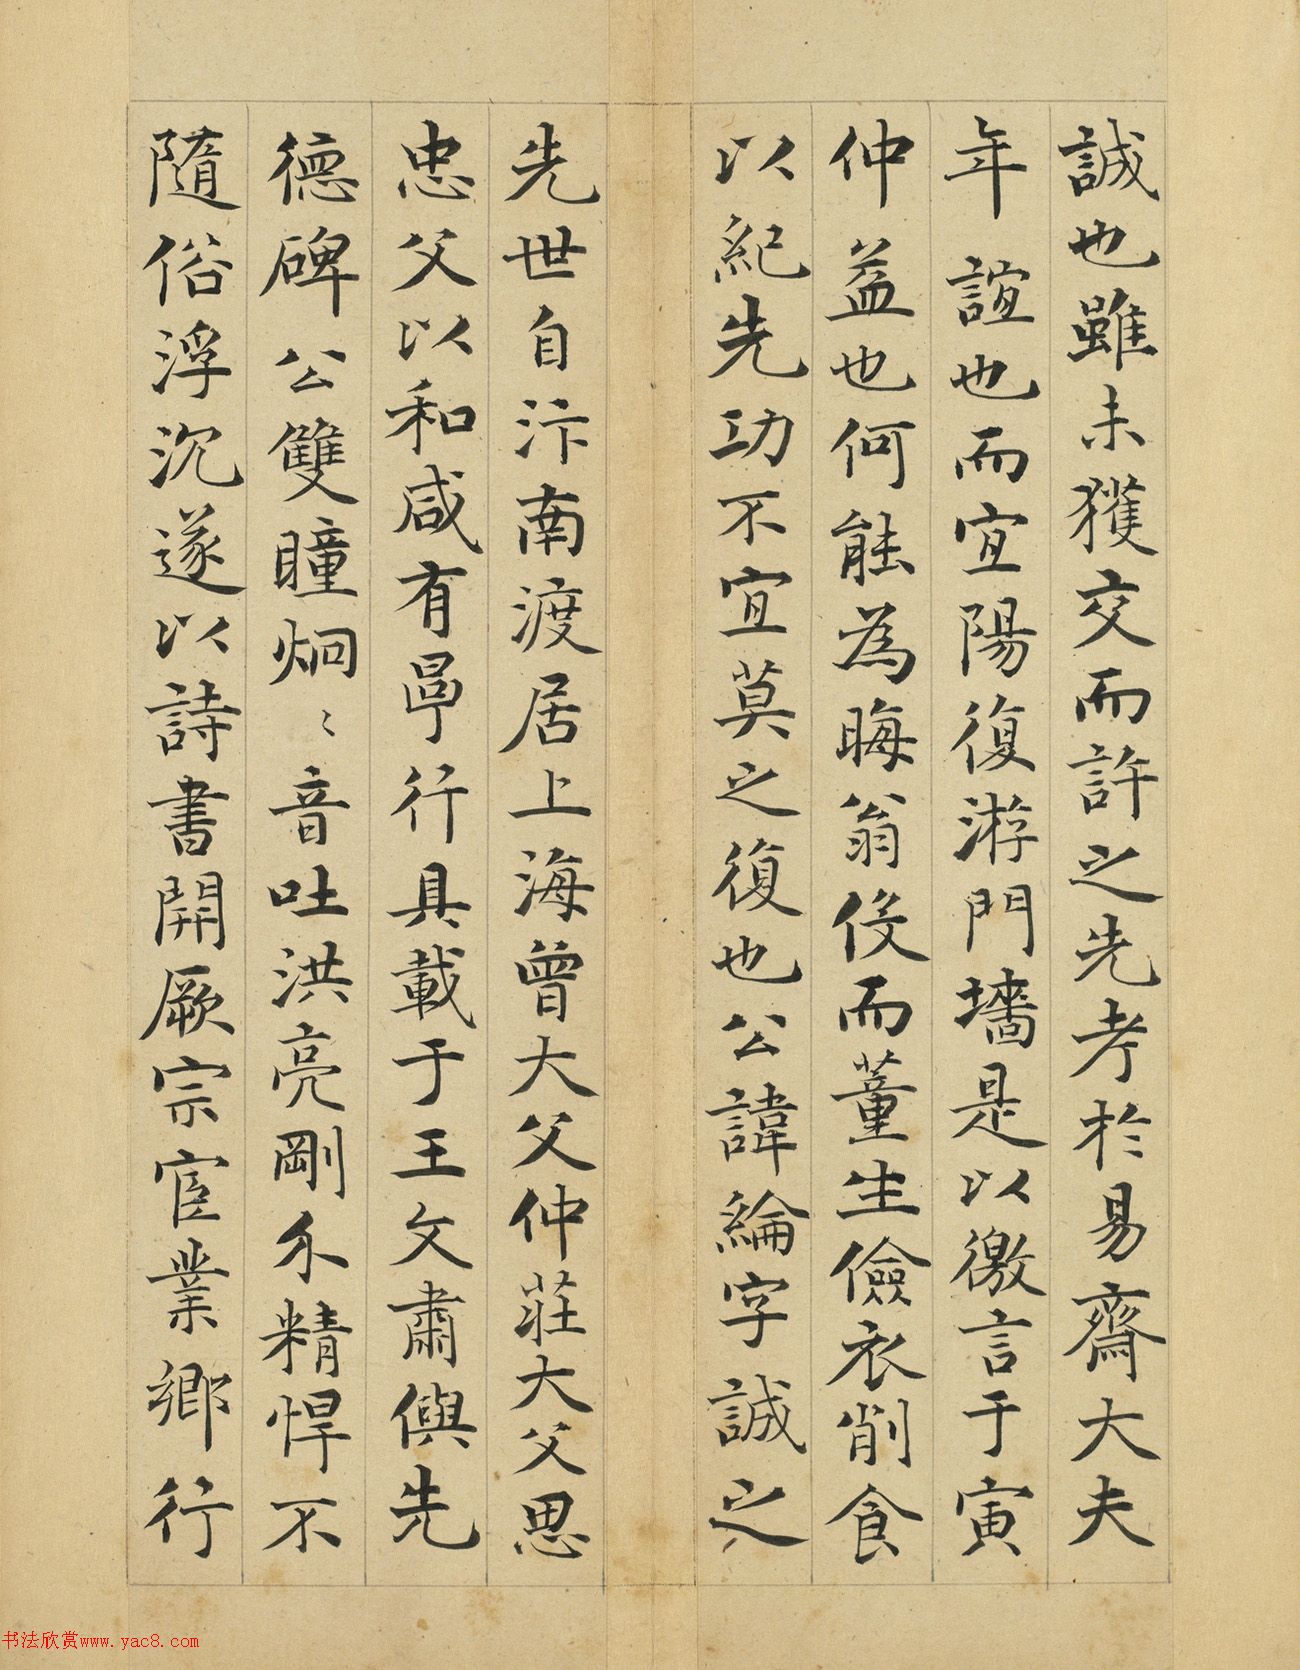 誠也雖未獲交而許之先考於易齋大夫
年誼也而宜陽復游門墻是以徼言于寅
仲益也何能為晦翁役而董生儉衣削食
以紀先功不宜莫之復也公諱綸字誠之
先世自汴南渡居上海曾大父仲莊大父思
忠父以和咸有㫗行具載于王文肅與先
德碑公雙瞳炯〻音吐洪亮剛介精悍不
隨俗浮沉遂以詩書開厥宗宦業鄉行
书法欣赏www.yac8.com